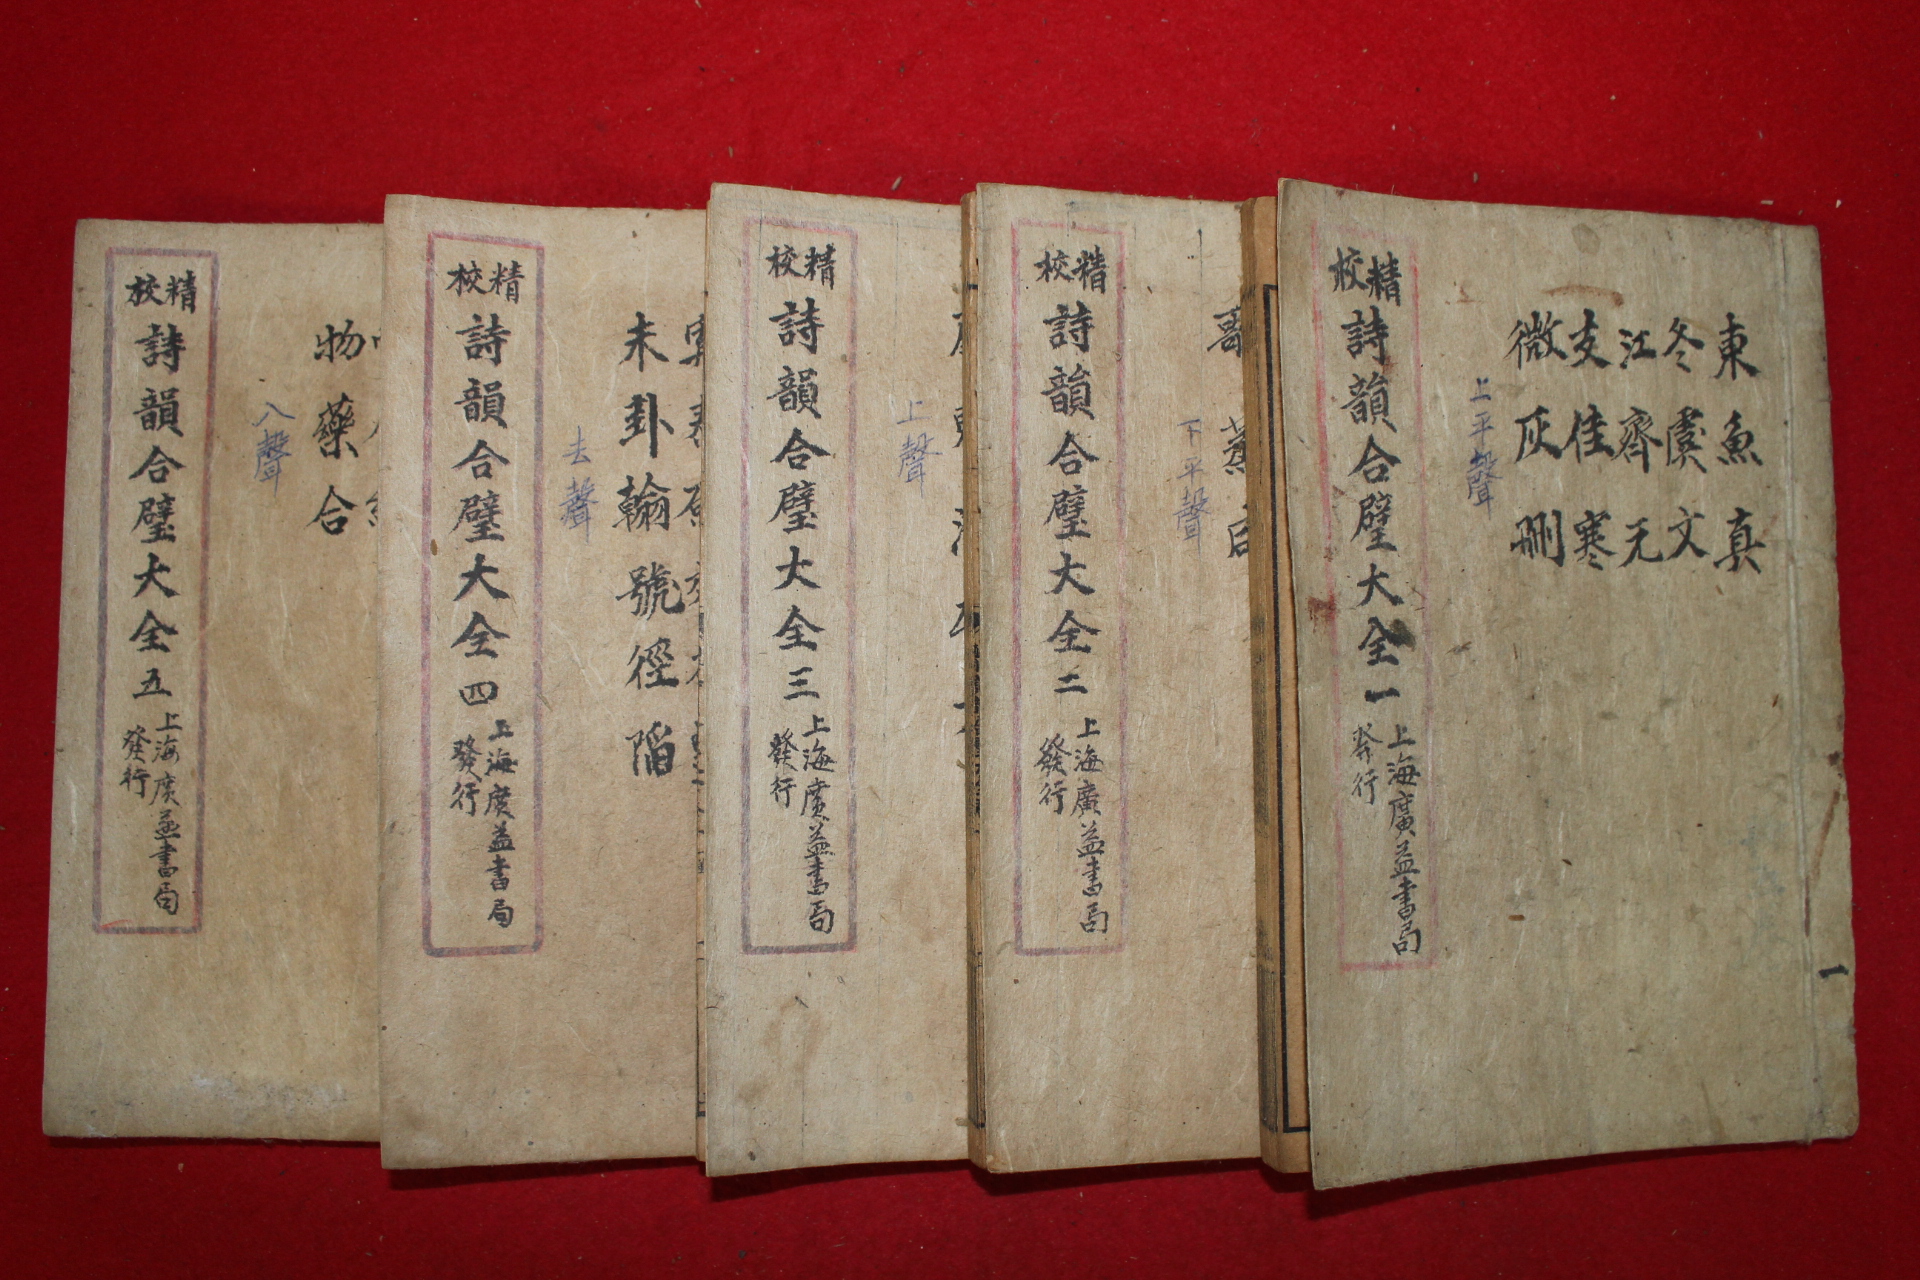 一
東魚真
冬虞文
江齊元
支佳寒
微灰刪
上平聲
精校
詩韻合璧大全一
上海廣益書局
發行
下平聲
精校
詩韻合璧大全二
上海廣益書局
發行
上聲
精校
詩韻合璧大全三
上海廣益書局
發行
未卦翰號徑陷
去聲
精校
詩韻合璧大全四
上海廣益書局
發行
物藥合
入聲
精校
詩韻合璧大全五
上海廣益書局
發行